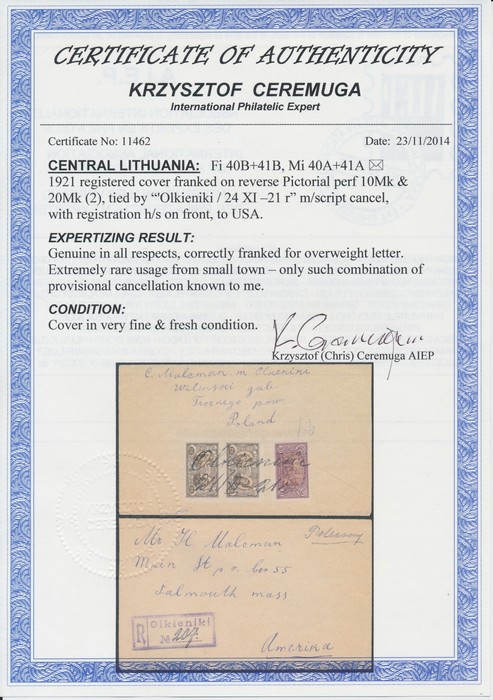 CERTIFICATE OF AUTHENTICITY
KRZYSZTOF CEREMUGA
International Philatelic Expert
Certificate No: 11462
Date: 23/11/2014
CENTRAL LITHUANIA: Fi 40B+41B, Mi 40A+41A ✉
1921 registered cover franked on reverse Pictorial perf 10Mk &
20Mk (2), tied by "'Olkieniki / 24 XI –21 r" m/script cancel,
with registration h/s on front, to USA.
EXPERTIZING RESULT:
Genuine in all respects, correctly franked for overweight letter.
Extremely rare usage from small town – only such combination of
provisional cancellation known to me.
CONDITION:
Cover in very fine & fresh condition.
Krzysztof (Chris) Ceremuga AIEP
C. Malcman m. Olkeniki
Wilenski gub.
Trocnego pow.
Poland
Mr H Malcman
Main St p.o. box 55
Falmouth mass
Amerika
Polecony
R
Olkieniki
№ 207